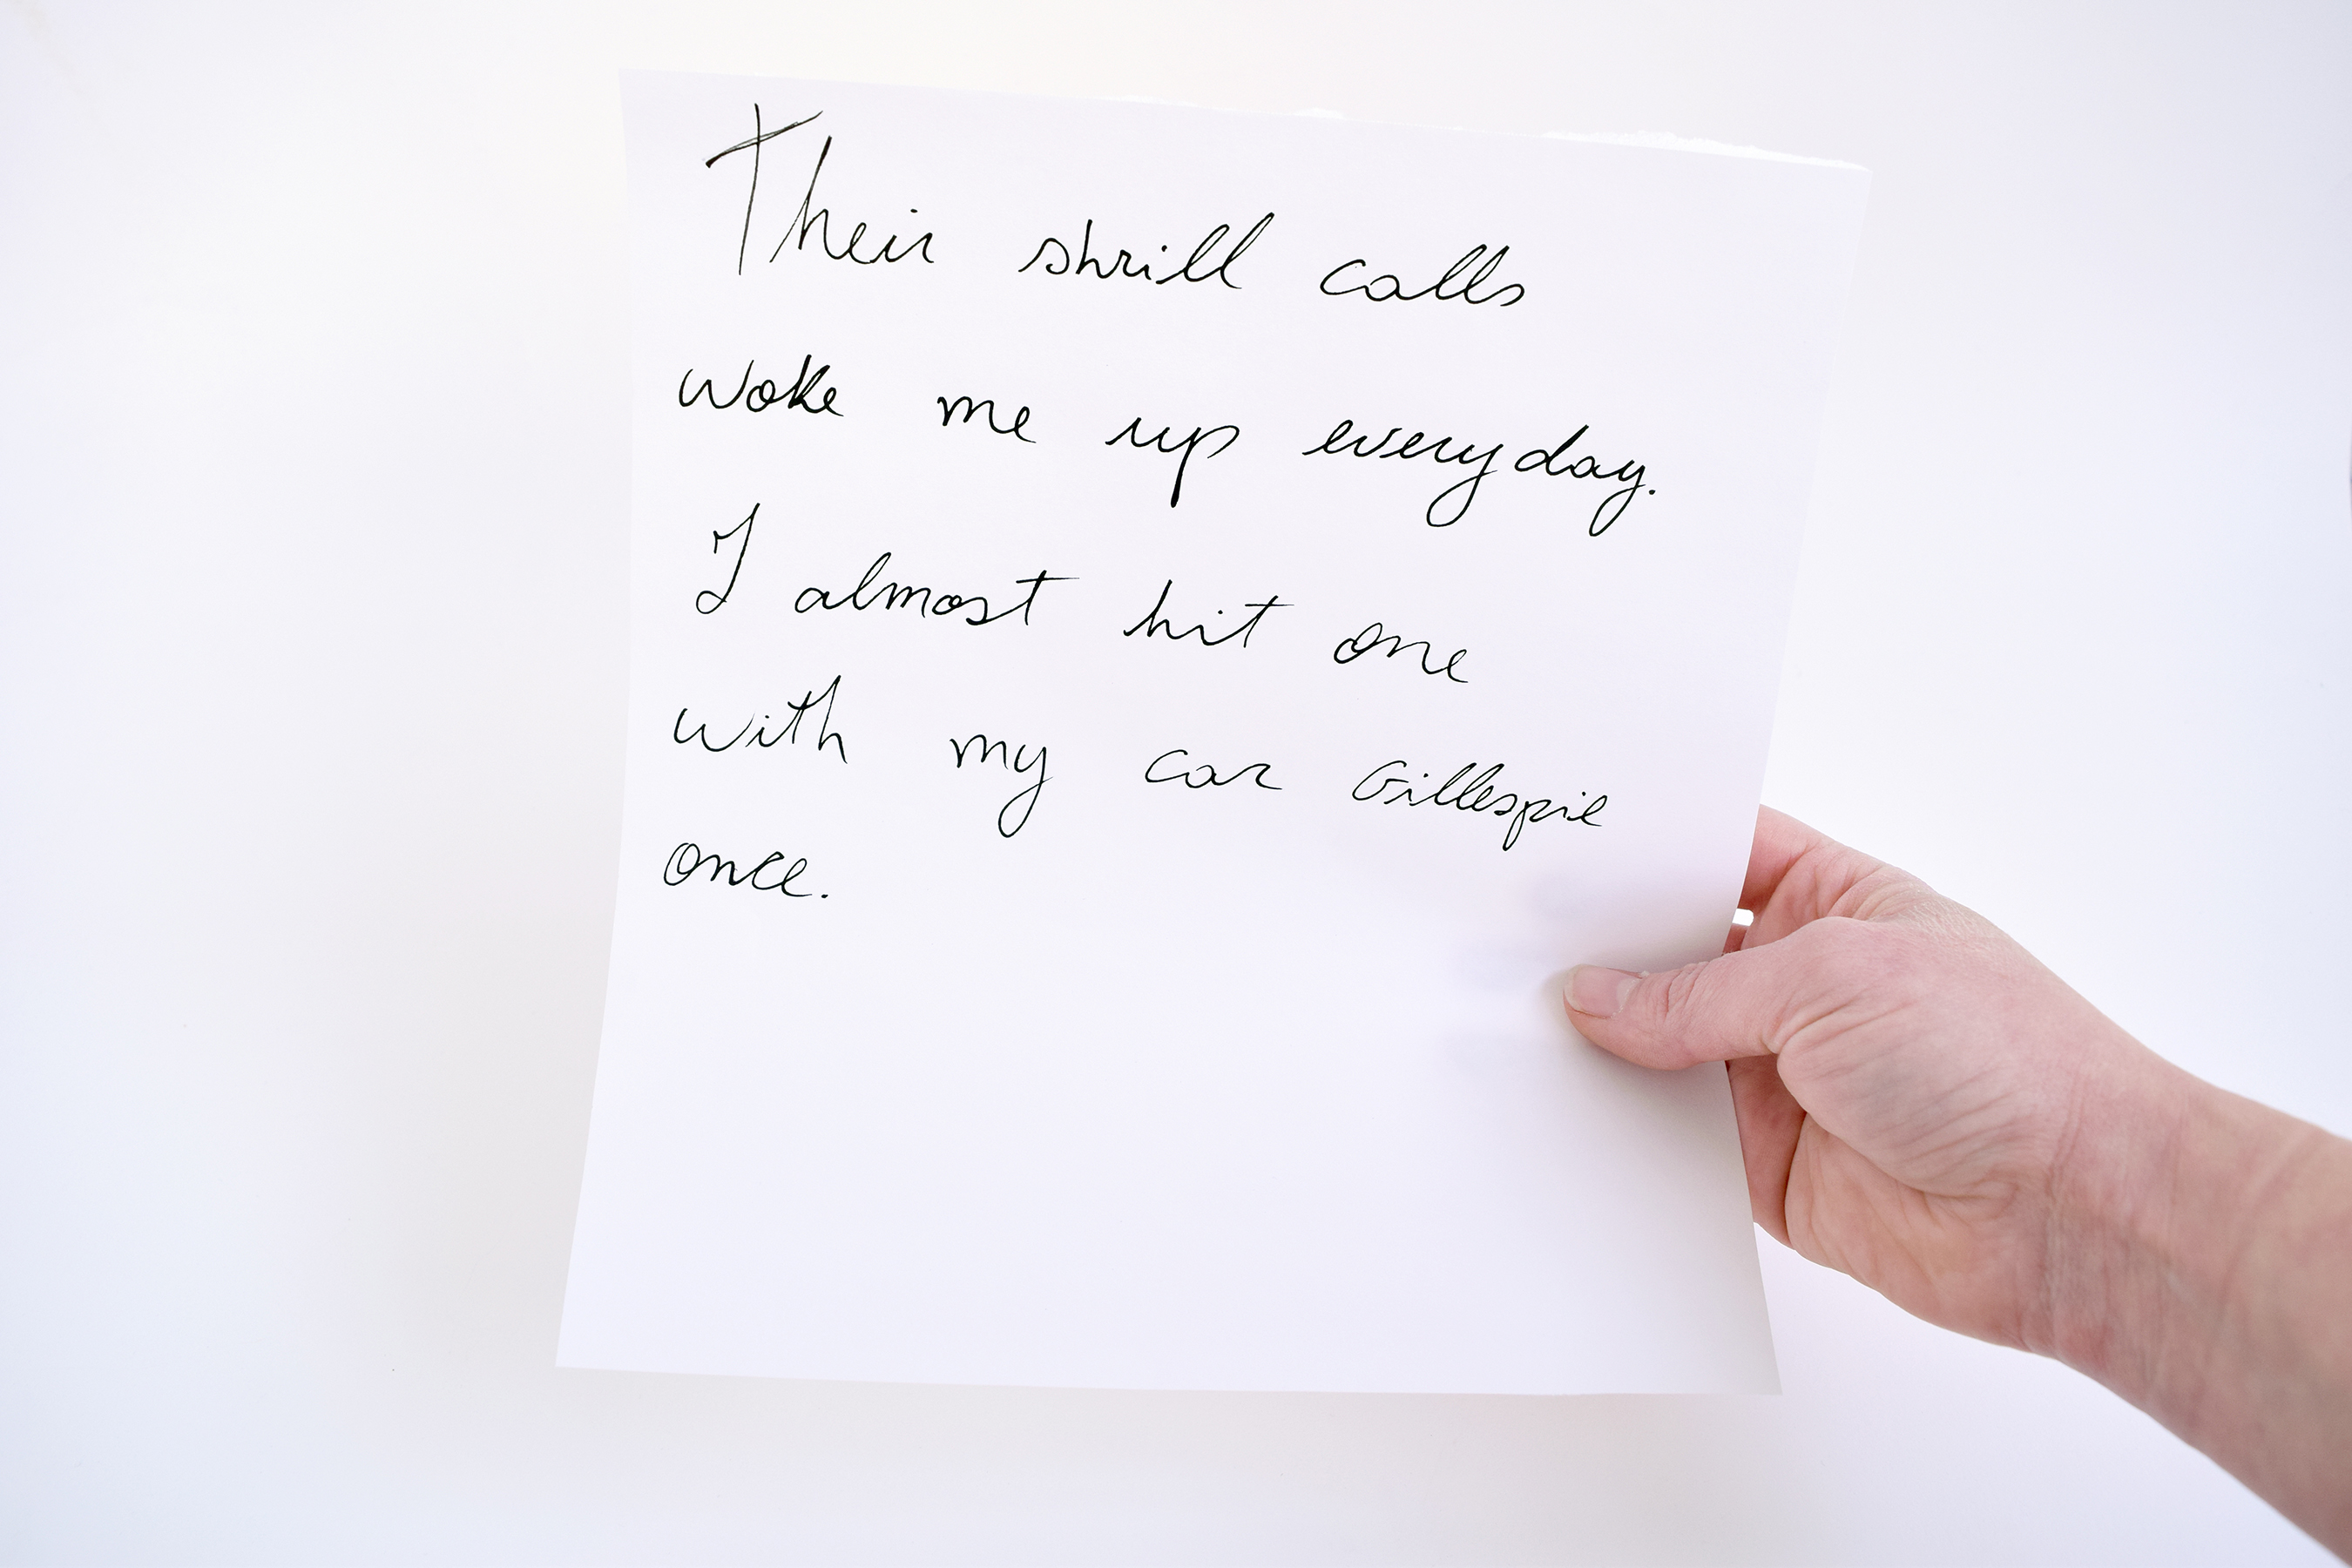 Their shrill calls
woke me up everyday.
I almost hit one
with my car Gillespie
once.